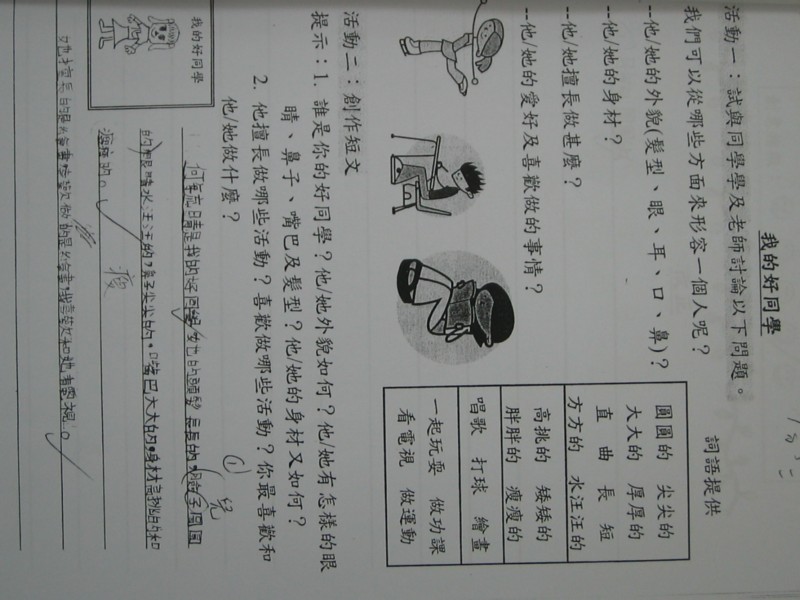 我的好同學
活動一：試與同學及老師討論以下問題。
我們可以從哪些方面來形容一個人呢？
--他/她的外貌(髮型、眼、耳、口、鼻)？
--他/她的身材？
--他/她擅長做甚麼？
--他/她的愛好及喜歡做的事情？
詞語提供
圓圓的 尖尖的
大大的 厚厚的
直 曲 長 短
方方的 水汪汪的
高挑的 矮矮的
胖胖的 瘦瘦的
唱歌 打球 繪畫
一起玩耍 做功課
看電視 做運動
活動二：創作短文
提示：1. 誰是你的好同學？他/她外貌如何？他/她有怎樣的眼
睛、鼻子、嘴巴及髮型？他/她的身材又如何？
2. 他擅長做哪些活動？喜歡做哪些活動？你最喜歡和
他/她做什麼？
我的好同學
是我的好同學
的眼睛水汪汪的，鼻子尖尖的，嘴巴大大的，身材高挑的和
瘦